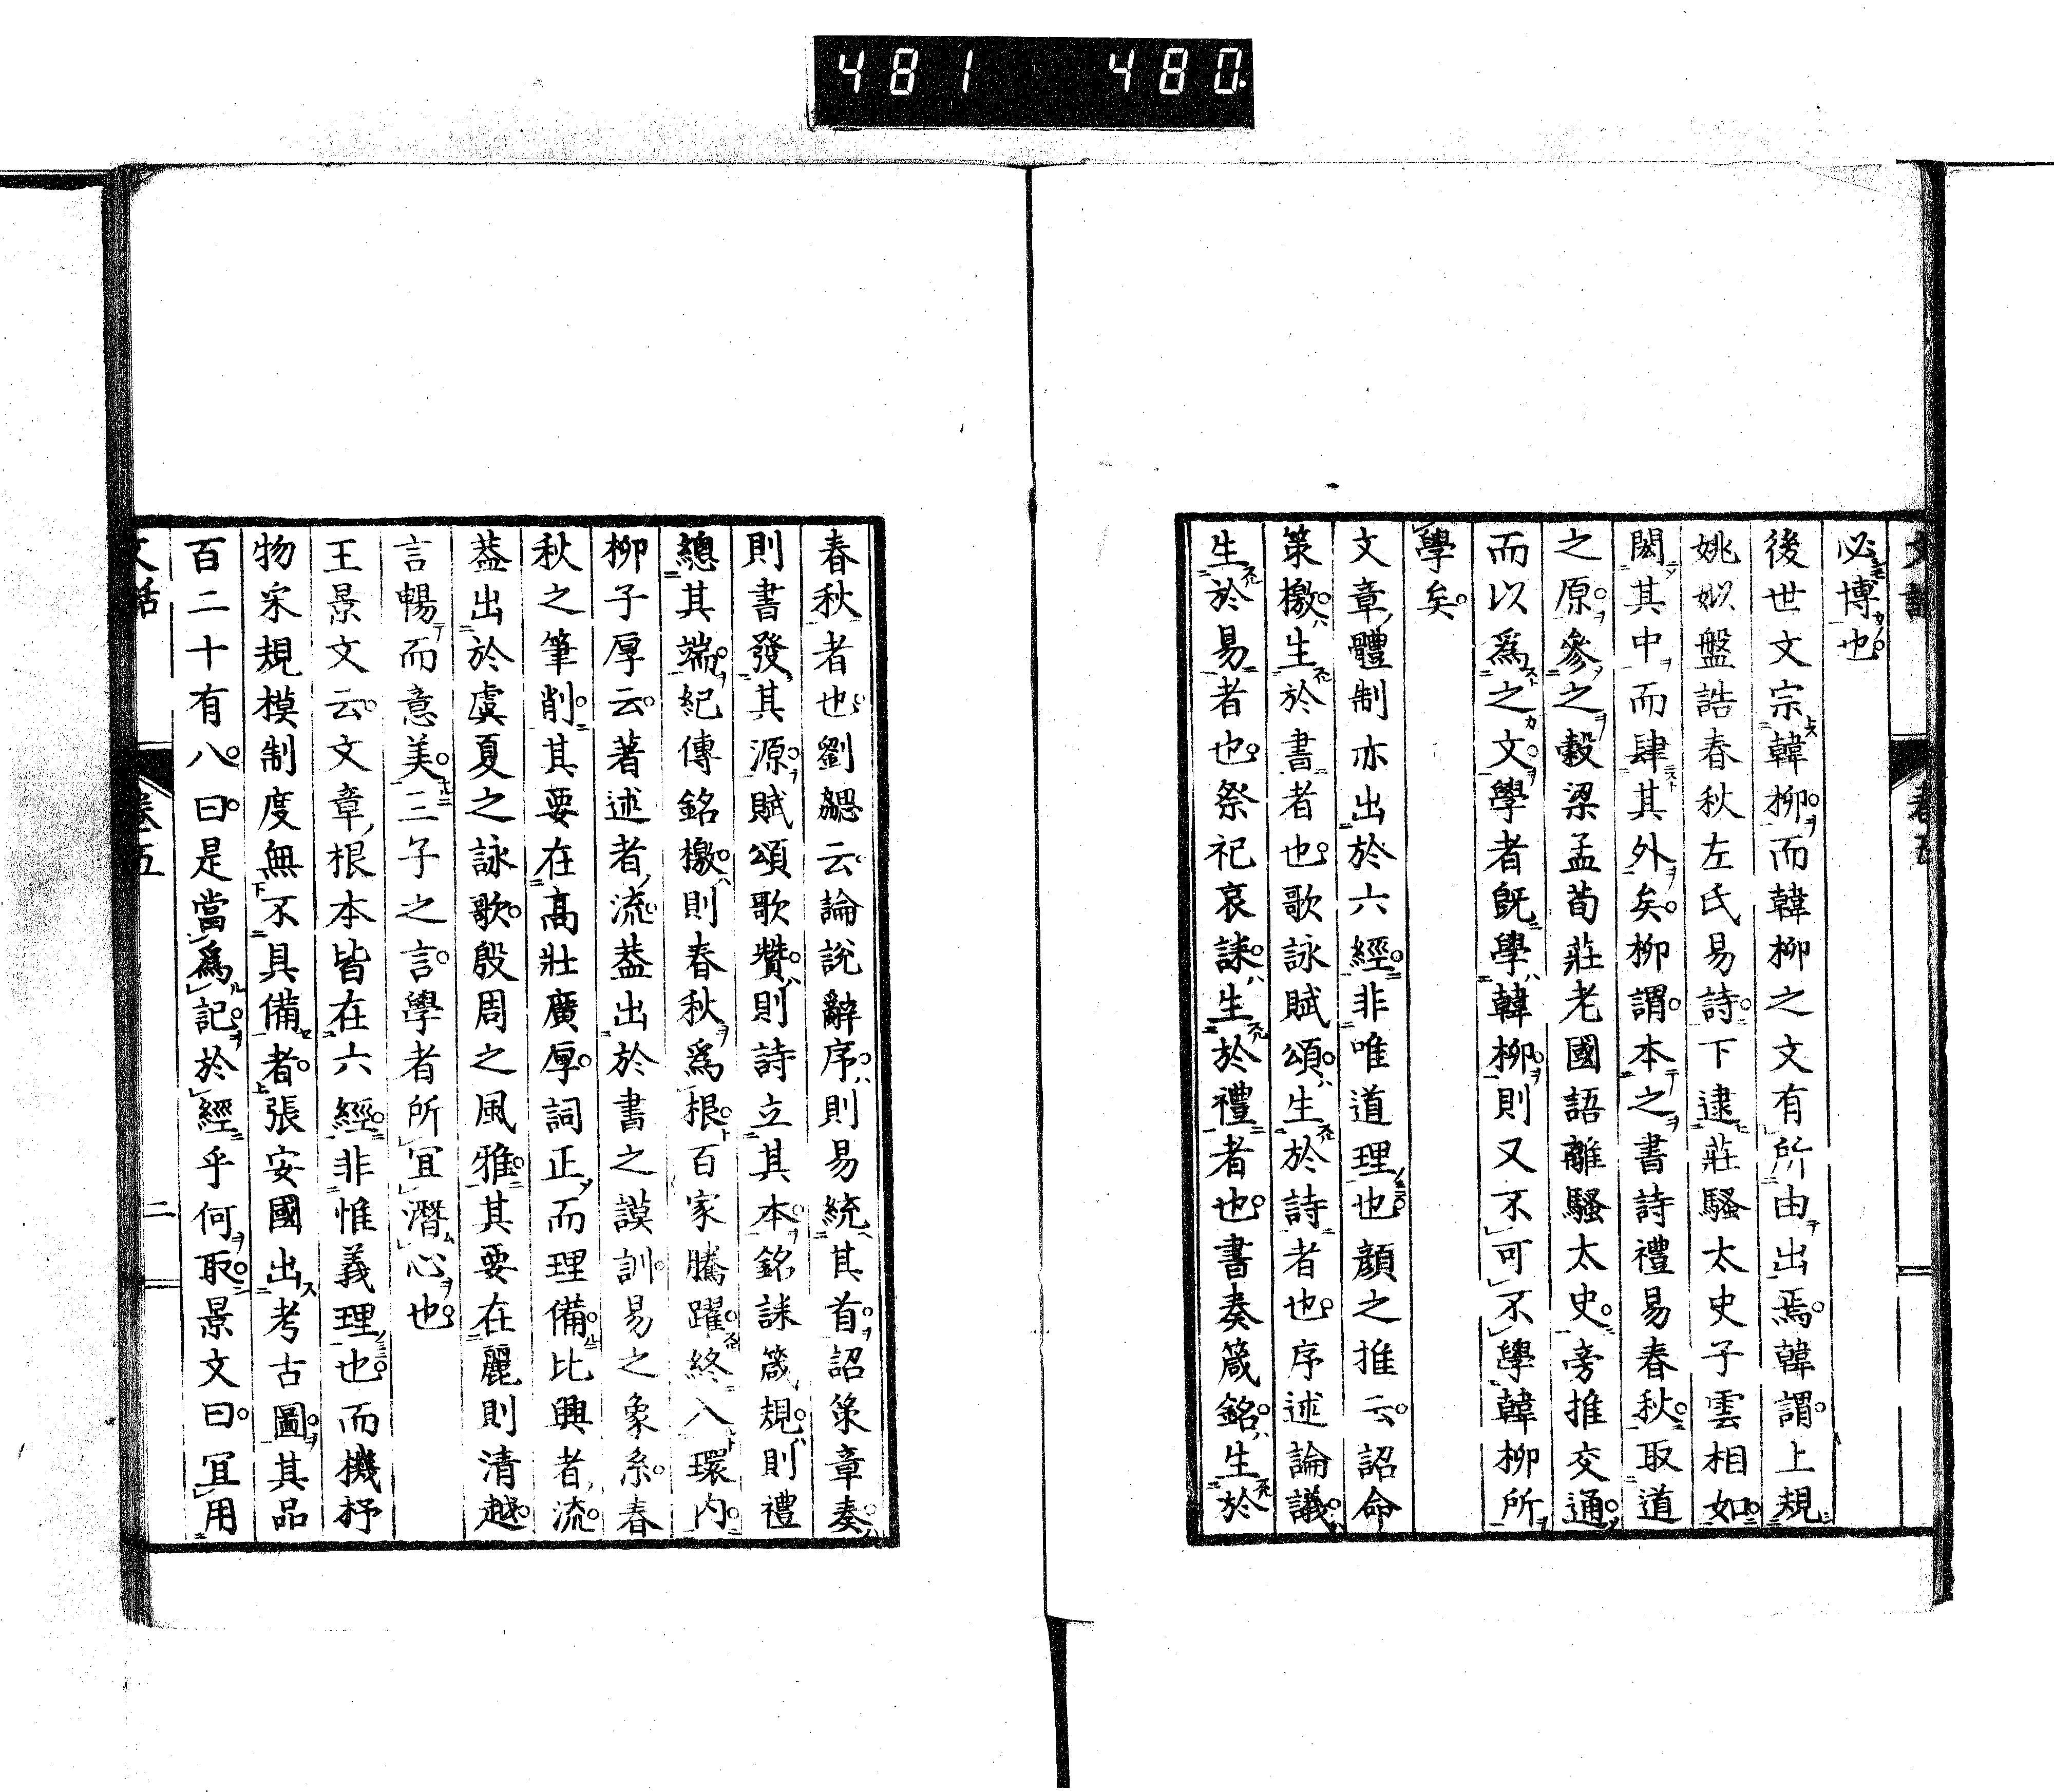 481 480
文話 卷五
必博也
後世文宗韓柳而韓柳之文有所由出焉韓謂上規
姚姒盤誥春秋左氏易詩下逮莊騷太史子雲相如
閎其中而肆其外矣柳謂本之書詩禮易春秋取道
之原參之穀梁孟荀莊老國語離騷太史旁推交通
而以爲之文學者既學韓柳則又不可不學韓柳所
學矣
文章體制亦出於六經非唯道理也顏之推云詔命
策檄生於書者也歌詠賦頌生於詩者也序述論議
生於易者也祭祀哀誄生於禮者也書奏箴銘生於
春秋者也劉勰云論說辭序則易統其首詔策章奏
則書發其源賦頌歌贊則詩立其本銘誄箴規則禮
總其端紀傳銘檄則春秋爲根百家騰躍終入環内
柳子厚云著述者流葢出於書之謨訓易之象系春
秋之筆削其要在高壯廣厚詞正而理備比興者流
葢出於虞夏之詠歌殷周之風雅其要在麗則清越
言暢而意美三子之言學者所宜潛心也
王景文云文章根本皆在六經非惟義理也而機杼
物采規模制度無不具備者張安國出考古圖其品
百二十有八曰是當爲記於經乎何取景文曰宜用
文話 卷五 二